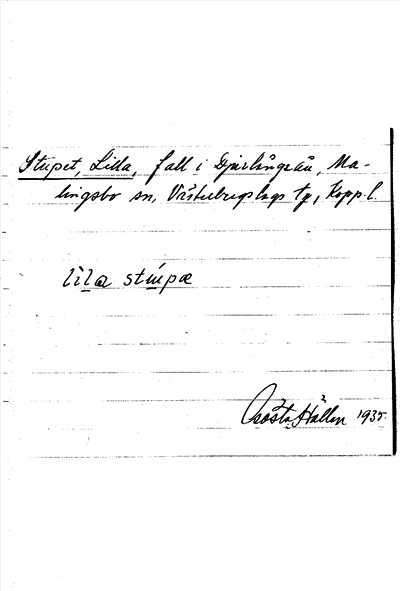 Stupet, Lilla, fall i Djurlångsån, Ma-
lingsbo sn, Västerbergslags tg, Kopp. l.
lìla stúpæ
Gösta Hållan 1935.